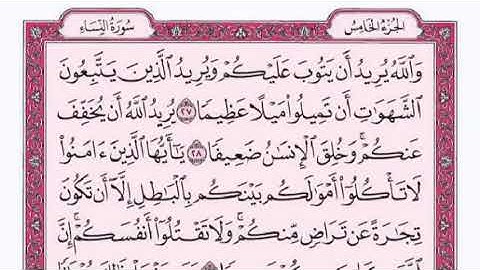 الجزء الخامس
سورة النساء
وَاللَّهُ يُرِيدُ أَن يَتُوبَ عَلَيْكُمْ وَيُرِيدُ الَّذِينَ يَتَّبِعُونَ
الشَّهَوَٰتِ أَن تَمِيلُوا۟ مَيْلًا عَظِيمًا ٢٧ يُرِيدُ اللَّهُ أَن يُخَفِّفَ
عَنكُمْ ۚ وَخُلِقَ الْإِنسَٰنُ ضَعِيفًا ٢٨ يَٰٓأَيُّهَا الَّذِينَ ءَامَنُوا۟
لَا تَأْكُلُوٓا۟ أَمْوَٰلَكُم بَيْنَكُم بِالْبَٰطِلِ إِلَّآ أَن تَكُونَ
تِجَٰرَةً عَن تَرَاضٍ مِّنكُمْ ۚ وَلَا تَقْتُلُوٓا۟ أَنفُسَكُمْ ۚ إِنَّ